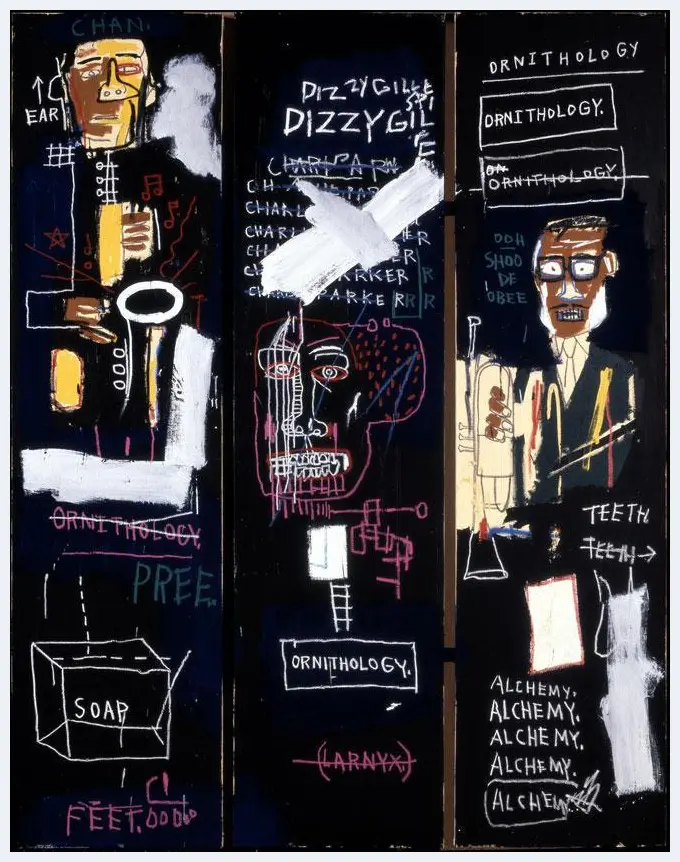 CHAN.
EAR
ORNITHOLOGY.
PREE.
SOAP
FEET.
DIZZYGILLE
SPI
DIZZYGIL
CHARL
PARKER
PARKERRR
ORNITHOLOGY.
(LARNYX.)
ORNITHOLOGY
ORNITHOLOGY.
ORNITHOLOGY.
OOH
SHOO
DE
OBEE
TEETH
TEETH
ALCHEMY,
ALCHEMY.
ALCHEMY.
ALCHEMY.
ALCHEM